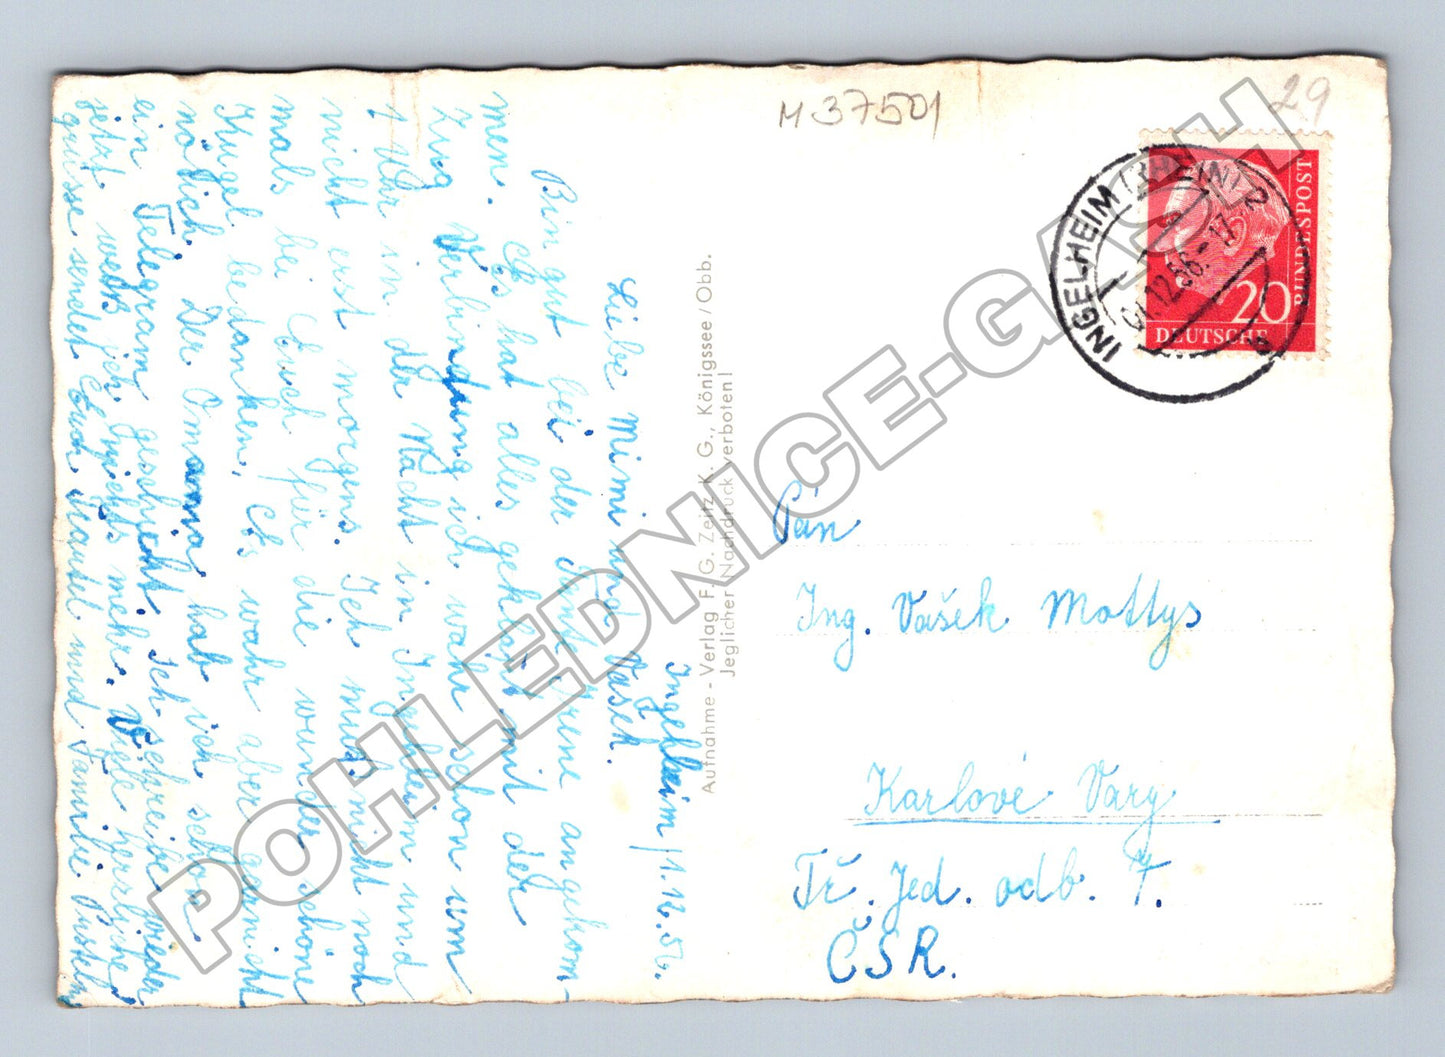 Ingelheim/1.12.56.
Liebe Mimi und Vašek.
Bin gut bei der Tente Irene angekom-
men. Es hat alles geklapt mit der
Zug Verbindung ich wahr schon um
1 Uhr in der Nacht in Ingelheim und
nicht erst morgens. Ich muß mich noch
mals bei Euch für die wunder schöne
Kugel bedanken, Es wahr aber garnicht
nötich. Der Omama hab ich schon
ein Telegram geschickt. Ich schreibe wieder
jetzt weiß ich nichts mehr. Viele herzliche
grüsse sendet Euch und Familie
M 37501
29
INGELHEIM (RHEIN) 2
01.12.56.-17
DEUTSCHE
BUNDESPOST
20
Pán
Ing. Vašek Mottys
Karlové Vary
Tř. Jed. odb. 7.
ČSR.
Aufnahme - Verlag F. G. Zeitz K. G., Königssee / Obb.
Jeglicher Nachdruck verboten!
POHLEDNICE-GASH